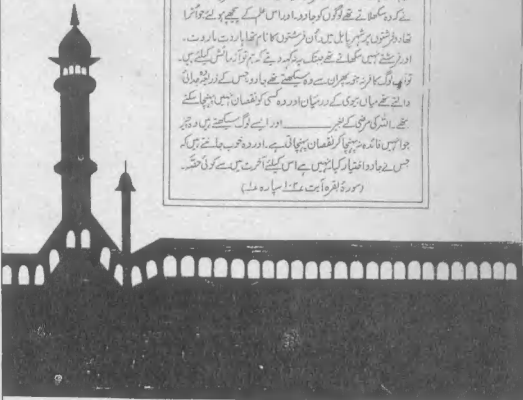 نے کہ وہ سکھلاتے تھے لوگوں کو جادو۔ اور اس علم کے پیچھے ہولئے جو اُترا
تھا دو فرشتوں پر شہر بابل میں اُن فرشتوں کا نام تھا ہاروت ماروت۔
اور فرشتے نہیں سکھاتے تھے جبتک یہ نہ کہہ دیتے کہ ہم تو آزمائش کیلئے ہیں۔
تو اب لوگ کافر نہ ہو پھر ان سے وہ سیکھتے تھے جادو جس کے ذریعہ جدائی
ڈالتے تھے میاں بیوی کے درمیان اور وہ کسی کو نقصان نہیں پہنچا سکتے
تھے۔ اللہ کی مرضی کے بغیر ______ اور ایسے لوگ سیکھتے ہیں وہ چیز
جو انہیں فائدہ نہ پہنچا کر نقصان پہنچاتی ہے۔ اور وہ خوب جانتے ہیں کہ
جس نے جادو اختیار کیا نہیں ہے اس کیلئے آخرت میں سے کوئی حصّہ۔
(سورۃ البقرہ آیت ۱۰۲ سپارہ ۱)